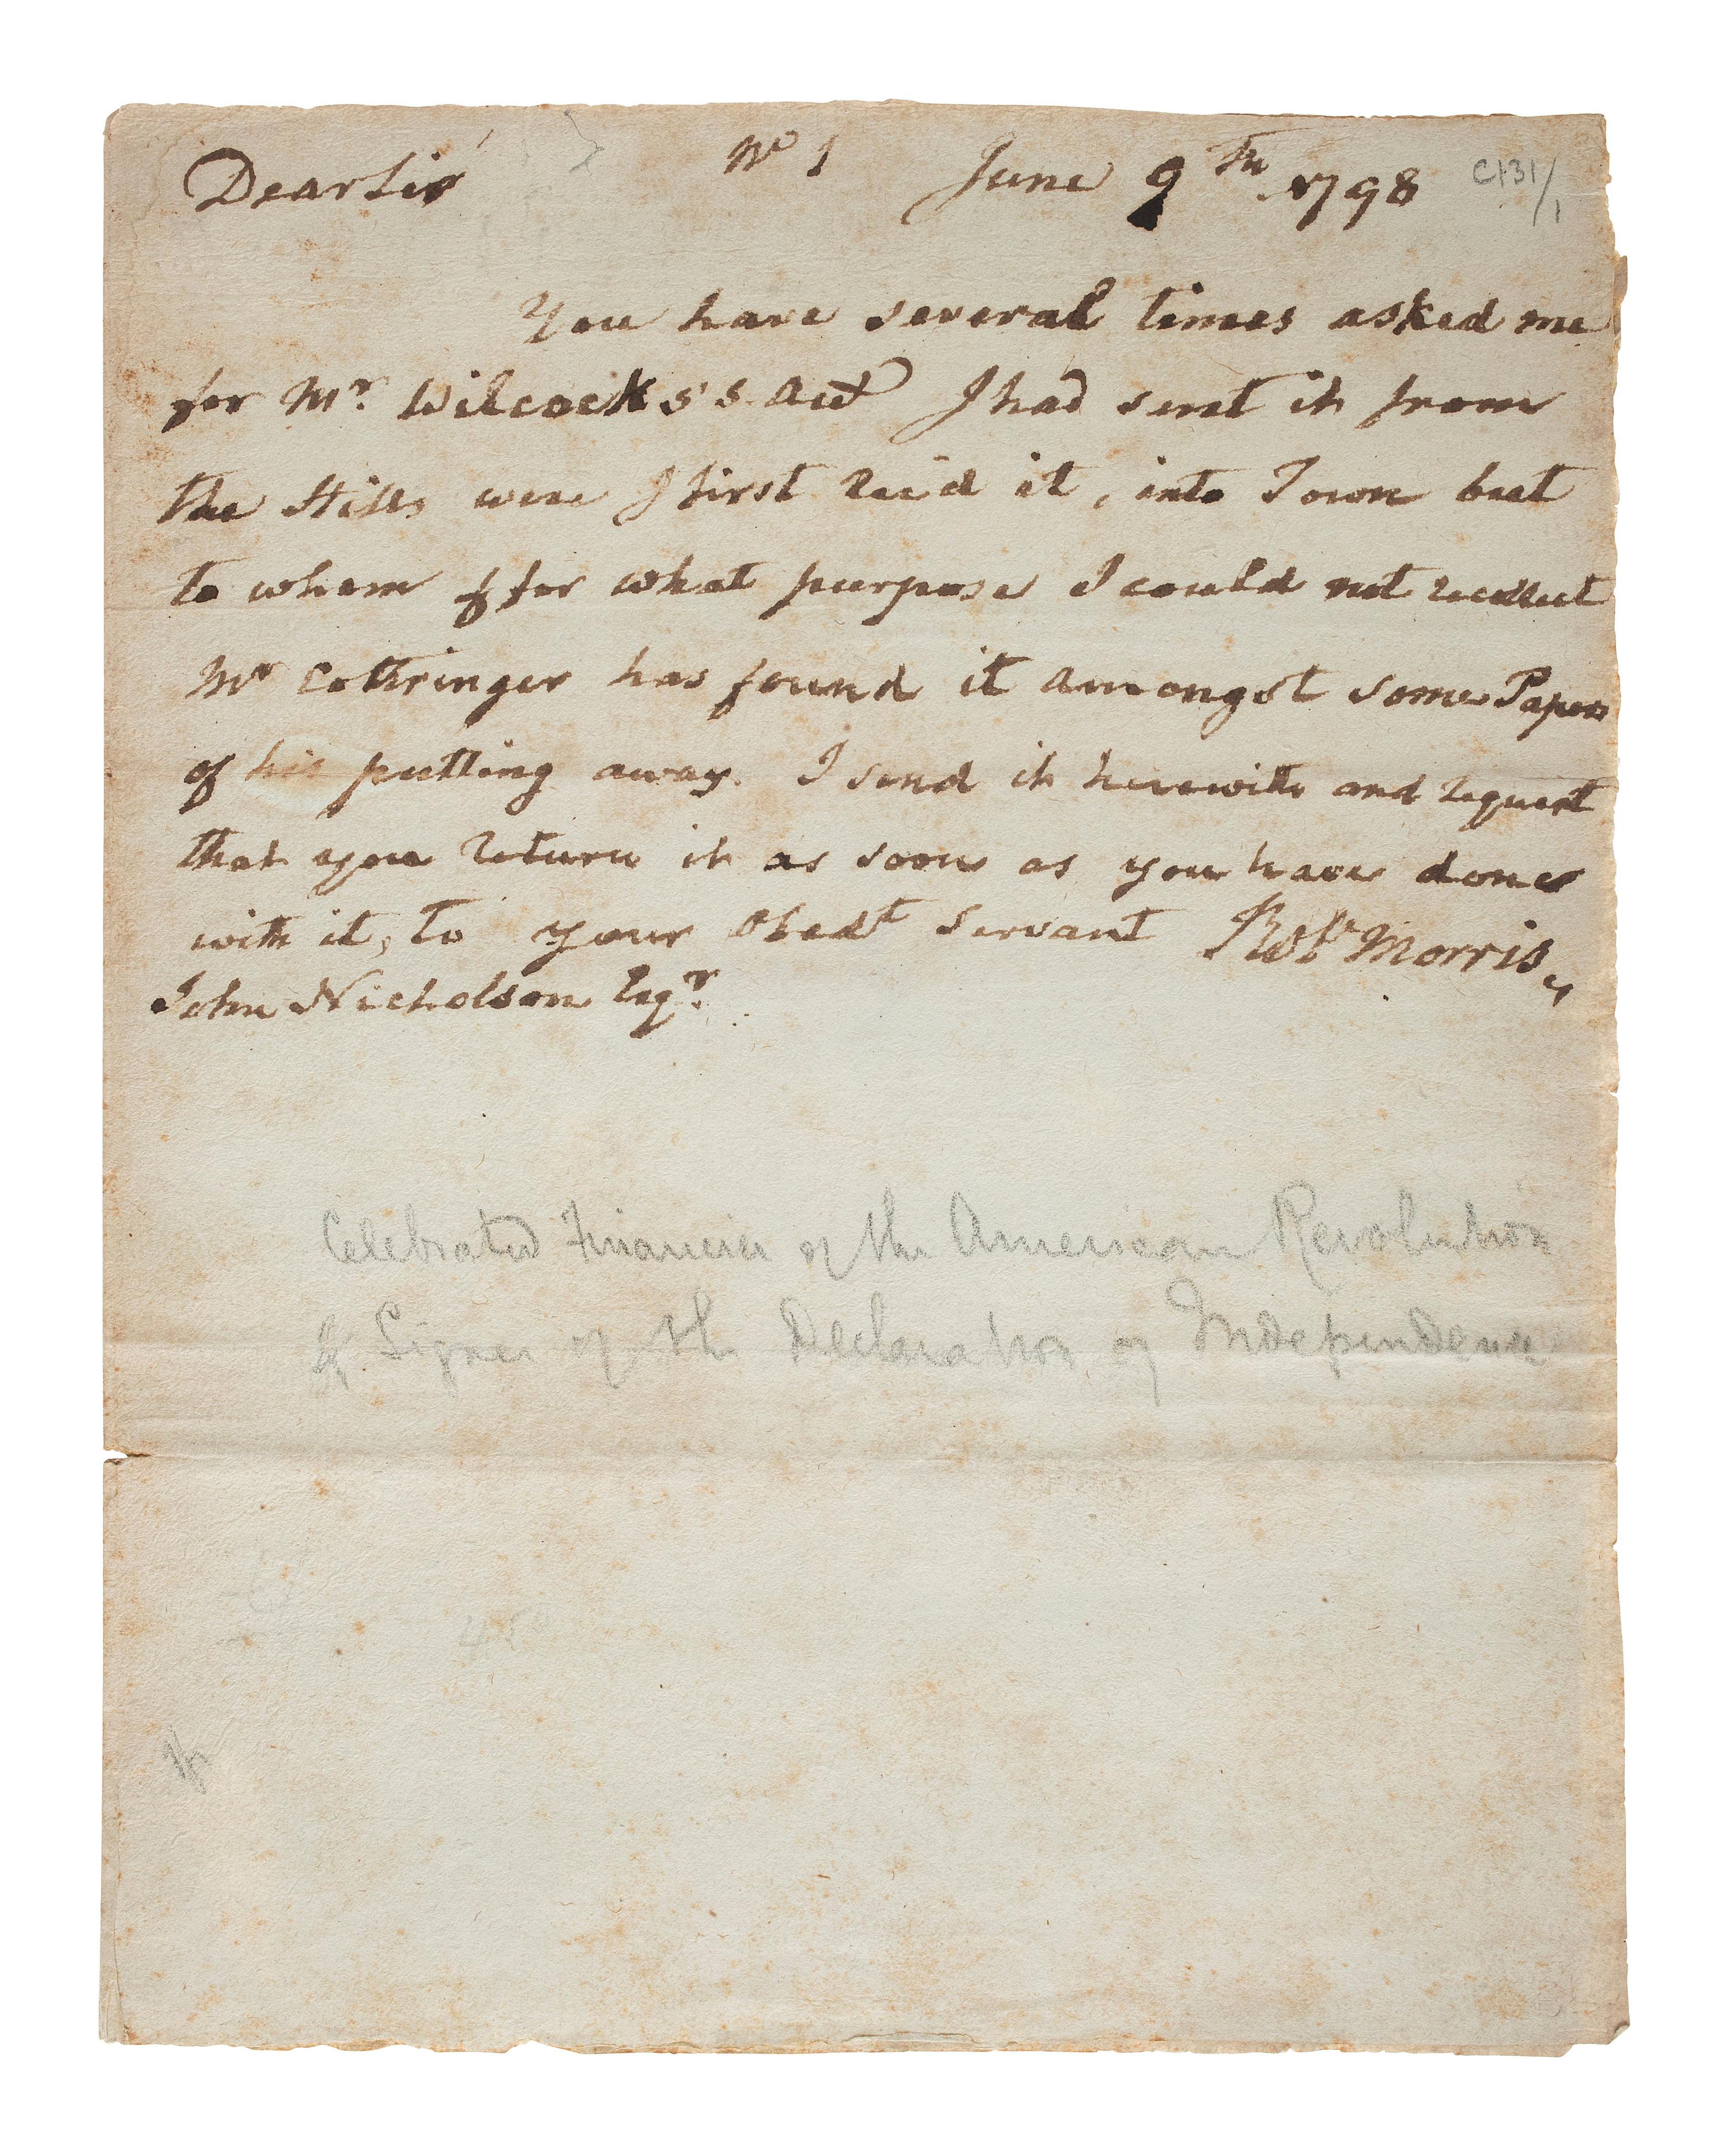 Dear Sir No 1 June 9th 1798 C131/1
You have several times asked me
for Mr. Wilcocks's Acct I had sent it from
the Hills were I first rec'd it, into Town but
to whom & for what purpose I could not recollect
Mr Cottringer has found it amongst some Papers
of his putting away. I send it herewith and request
that you return it as soon as you have done
with it, to your Obedt Servant Robt Morris
John Nicholson Esqr.
Celebrated Financier of the American Revolution
& Signer of the Declaration of Independence